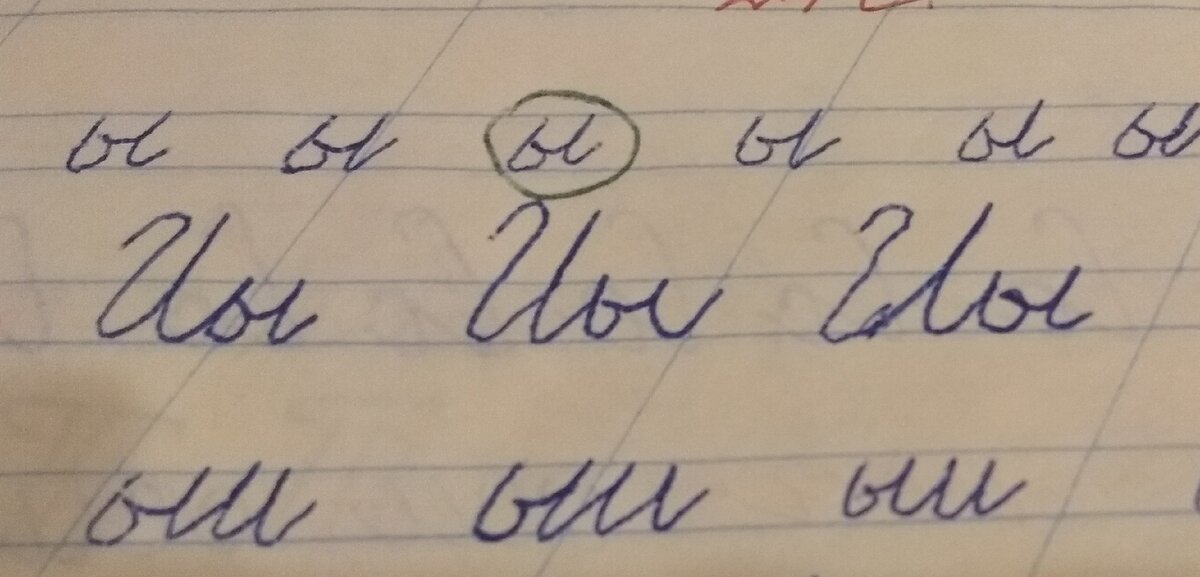 ы ы ы ы ы ы
Иы Иы Иы
ыи ыи ыи